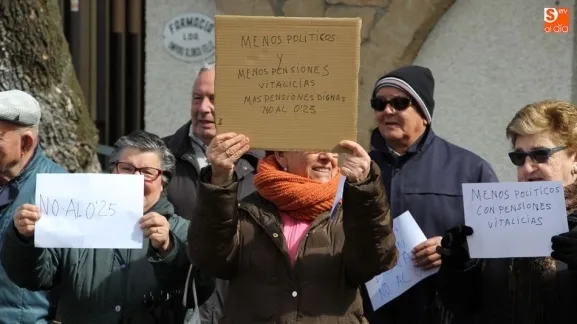 FARMACIA
LDA.
S
RTV
al día
MENOS POLITICOS
Y
MENOS PENSIONES
VITALICIAS
MAS PENSIONES DIGNAS
NO AL 0'25
NO-AL 0'25
NO AL
MENOS POLITICOS
CON PENSIONES
VITALICIAS